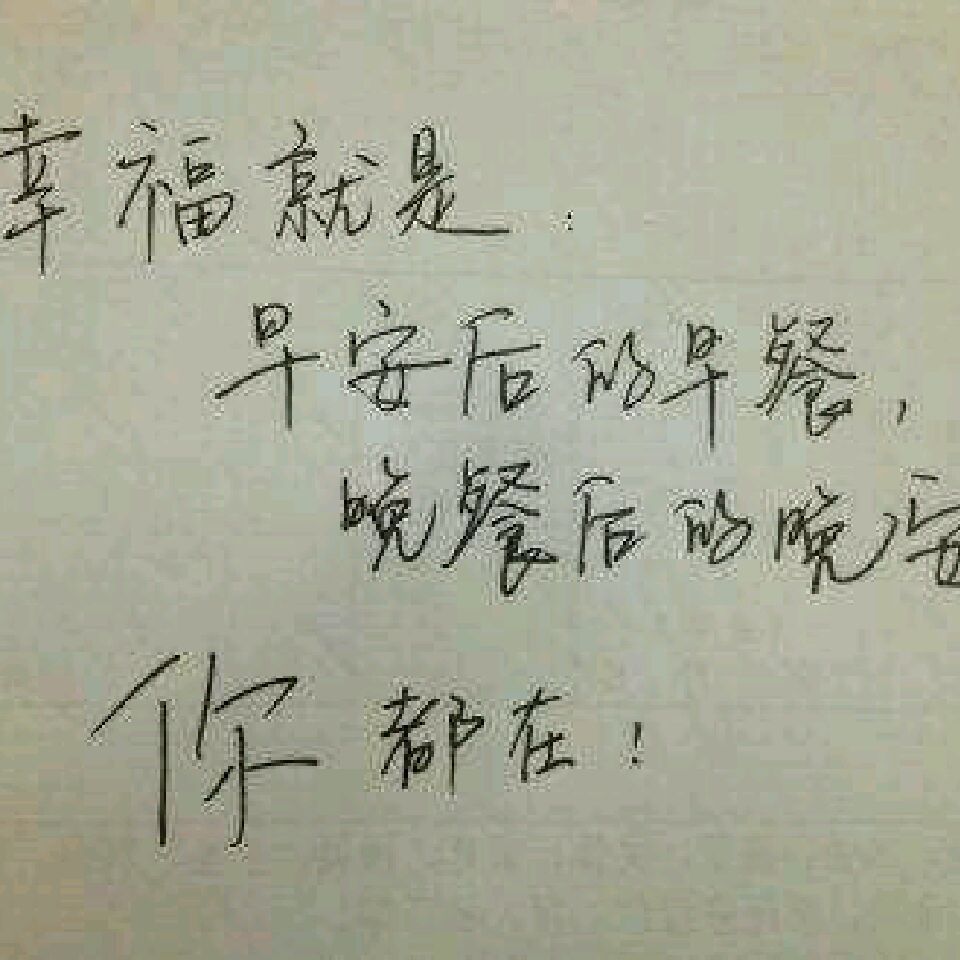 幸福就是:
早安后的早餐,
晚餐后的晚安
你都在!